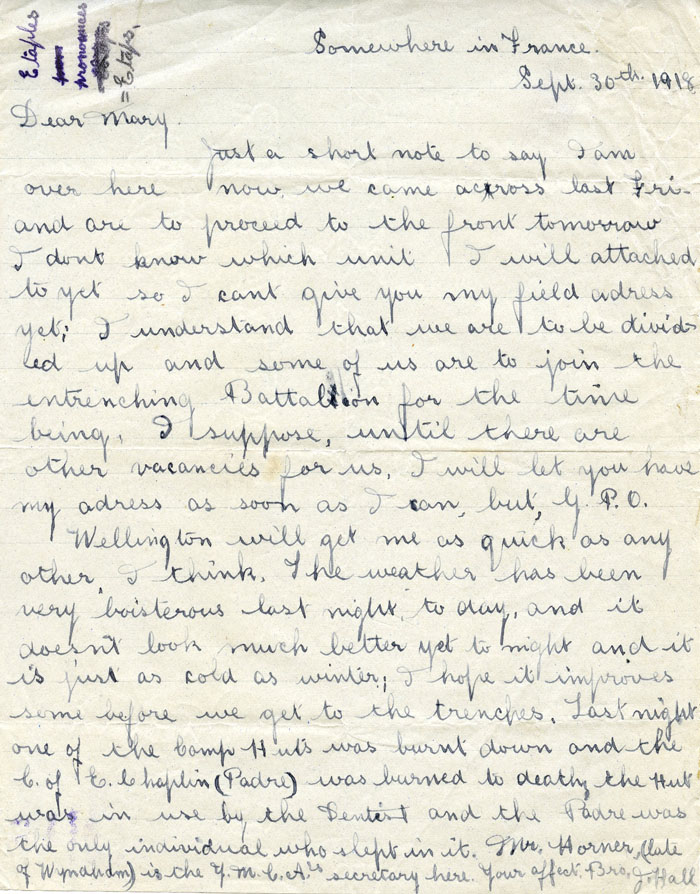 Etaples
pronounces
= Etaps.
Somewhere in France.
Sept. 30th. 1918
Dear Mary.
Just a short note to say I am
over here now, we came across last Fri-
and are to proceed to the front tomorrow
I dont know which unit I will attached
to yet so I cant give you my field adress
yet; I understand that we are to be divid-
ed up and some of us are to join the
entrenching Battalion for the time
being, I suppose, until there are
other vacancies for us, I will let you have
my adress as soon as I can, but, G. P. O.
Wellington will get me as quick as any
other, I think. The weather has been
very boisterous last night, to day, and it
doesn't look much better yet to night and it
is just as cold as winter; I hope it improves
some before we get to the trenches. Last night
one of the Camp Huts was burnt down and the
C. of E. Chaplin (Padre) was burned to death, the Hut
was in use by the Dentist and the Padre was
the only individual who slept in it. Mr. Horner, (late
of Wynaham) is the Y. M. C. A's secretary here. Your affect. Bro. J. Hall